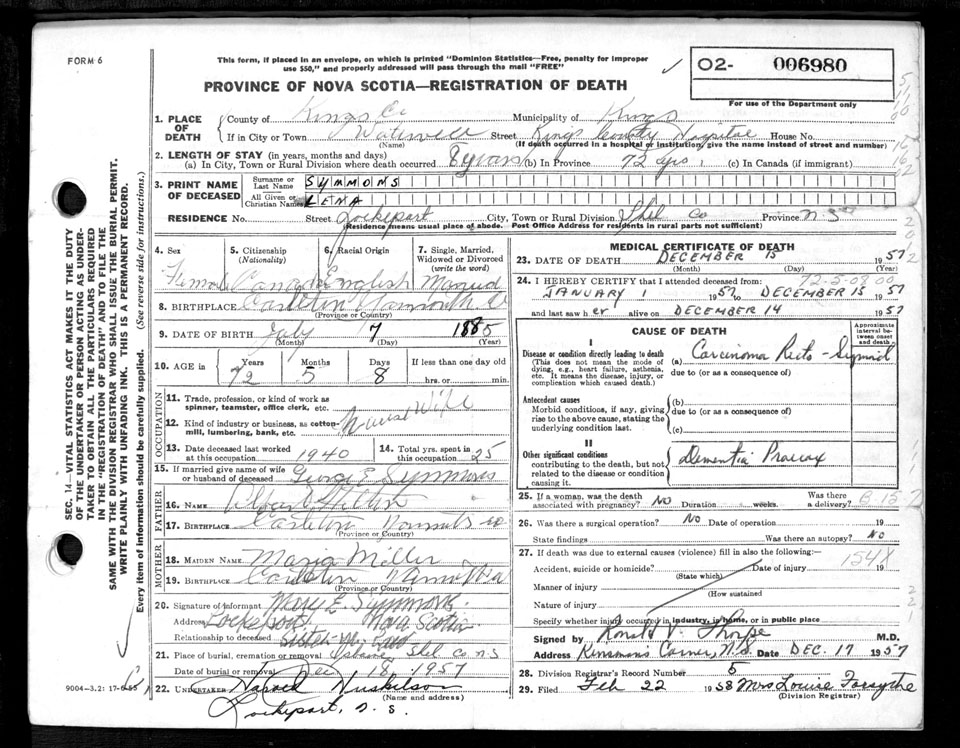 FORM 6
This form, if placed in an envelope, on which is printed "Dominion Statistics—Free, penalty for improper
use $50," and properly addressed will pass through the mail "FREE"
✓ O2- 006980
For use of the Department only
PROVINCE OF NOVA SCOTIA—REGISTRATION OF DEATH
1. PLACE OF DEATH
County of Kings Co Municipality of Kings
If in City or Town Waterville Street Kings County Hospital House No.
(Name) (If death occurred in a hospital or institution, give the name instead of street and number)
2. LENGTH OF STAY (in years, months and days)
(a) In City, Town or Rural Division where death occurred 8 years (b) In Province 72 yrs (c) In Canada (if immigrant)
3. PRINT NAME OF DECEASED
Surname or Last Name SYMMONS
All Given or Christian Names LENA
RESIDENCE No. Street Lockeport City, Town or Rural Division Shel Co Province N S
(Residence means usual place of abode. Post Office Address for residents in rural parts not sufficient)
4. Sex 5. Citizenship (Nationality) 6. Racial Origin 7. Single, Married, Widowed or Divorced (write the word)
Female Canad English Married
8. BIRTHPLACE Carleton Yarmouth Co
(Province or Country)
9. DATE OF BIRTH July 7 1885
(Month) (Day) (Year)
10. AGE in Years Months Days If less than one day old
72 5 8 hrs. or min.
OCCUPATION
11. Trade, profession, or kind of work as spinner, teamster, office clerk, etc.
House Wife
12. Kind of industry or business, as cotton-mill, lumbering, bank, etc.
13. Date deceased last worked at this occupation 1940 14. Total yrs. spent in this occupation 25
15. If married give name of wife or husband of deceased George E Symmons
FATHER
16. NAME Hilton
17. BIRTHPLACE Carleton Yarmouth Co
(Province or Country)
MOTHER
18. MAIDEN NAME Maria Miller
19. BIRTHPLACE Carleton
(Province or Country)
20. Signature of informant Mary E. Symmons
Address Lockeport, Nova Scotia
Relationship to deceased Sister-in-Law
21. Place of burial, cremation or removal Shel Co N S
Date of burial or removal Dec 18 1957
22. UNDERTAKER
(Name and address)
Lockeport, N. S.
9004-3.2: 17-6-55
MEDICAL CERTIFICATE OF DEATH
23. DATE OF DEATH DECEMBER 15 1957
(Month) (Day) (Year)
24. I HEREBY CERTIFY that I attended deceased from: 72-5-08 00
JANUARY 1 1957 to DECEMBER 15 1957
and last saw her alive on DECEMBER 14 1957
CAUSE OF DEATH
Approximate interval between onset and death
I
Disease or condition directly leading to death (a) Carcinoma Recto-Sigmoid
(This does not mean the mode of dying, e.g., heart failure, asthenia, etc. It means the disease, injury, or complication which caused death.)
due to (or as a consequence of)
Antecedent causes
Morbid conditions, if any, giving rise to the above cause, stating the underlying condition last.
(b)
due to (or as a consequence of)
(c)
II
Other significant conditions
contributing to the death, but not related to the disease or condition causing it.
Dementia Praecox
25. If a woman, was the death associated with pregnancy? NO Duration weeks. Was there a delivery? B 157
26. Was there a surgical operation? NO Date of operation 19
State findings Was there an autopsy? NO
27. If death was due to external causes (violence) fill in also the following:—
Accident, suicide or homicide? Date of injury 19
154X
(State which)
Manner of injury
(How sustained
Nature of injury
Specify whether injury occurred in industry, in home, or in public place
Signed by Ronald V. Thorpe M.D.
Address Kinsman's Corner, N.S. Date DEC. 17 1957
28. Division Registrar's Record Number 5
29. Filed Feb 22 1958 Mrs Louise Forsythe
(Division Registrar)
SEC. 14—VITAL STATISTICS ACT MAKES IT THE DUTY
OF THE UNDERTAKER OR PERSON ACTING AS UNDER-
TAKER TO OBTAIN ALL THE PARTICULARS REQUIRED
IN THE "REGISTRATION OF DEATH" AND TO FILE THE
SAME WITH THE DIVISION REGISTRAR WHO SHALL ISSUE THE BURIAL PERMIT.
WRITE PLAINLY WITH UNFADING INK. THIS IS A PERMANENT RECORD.
Every item of information should be carefully supplied. (See reverse side for instructions.)